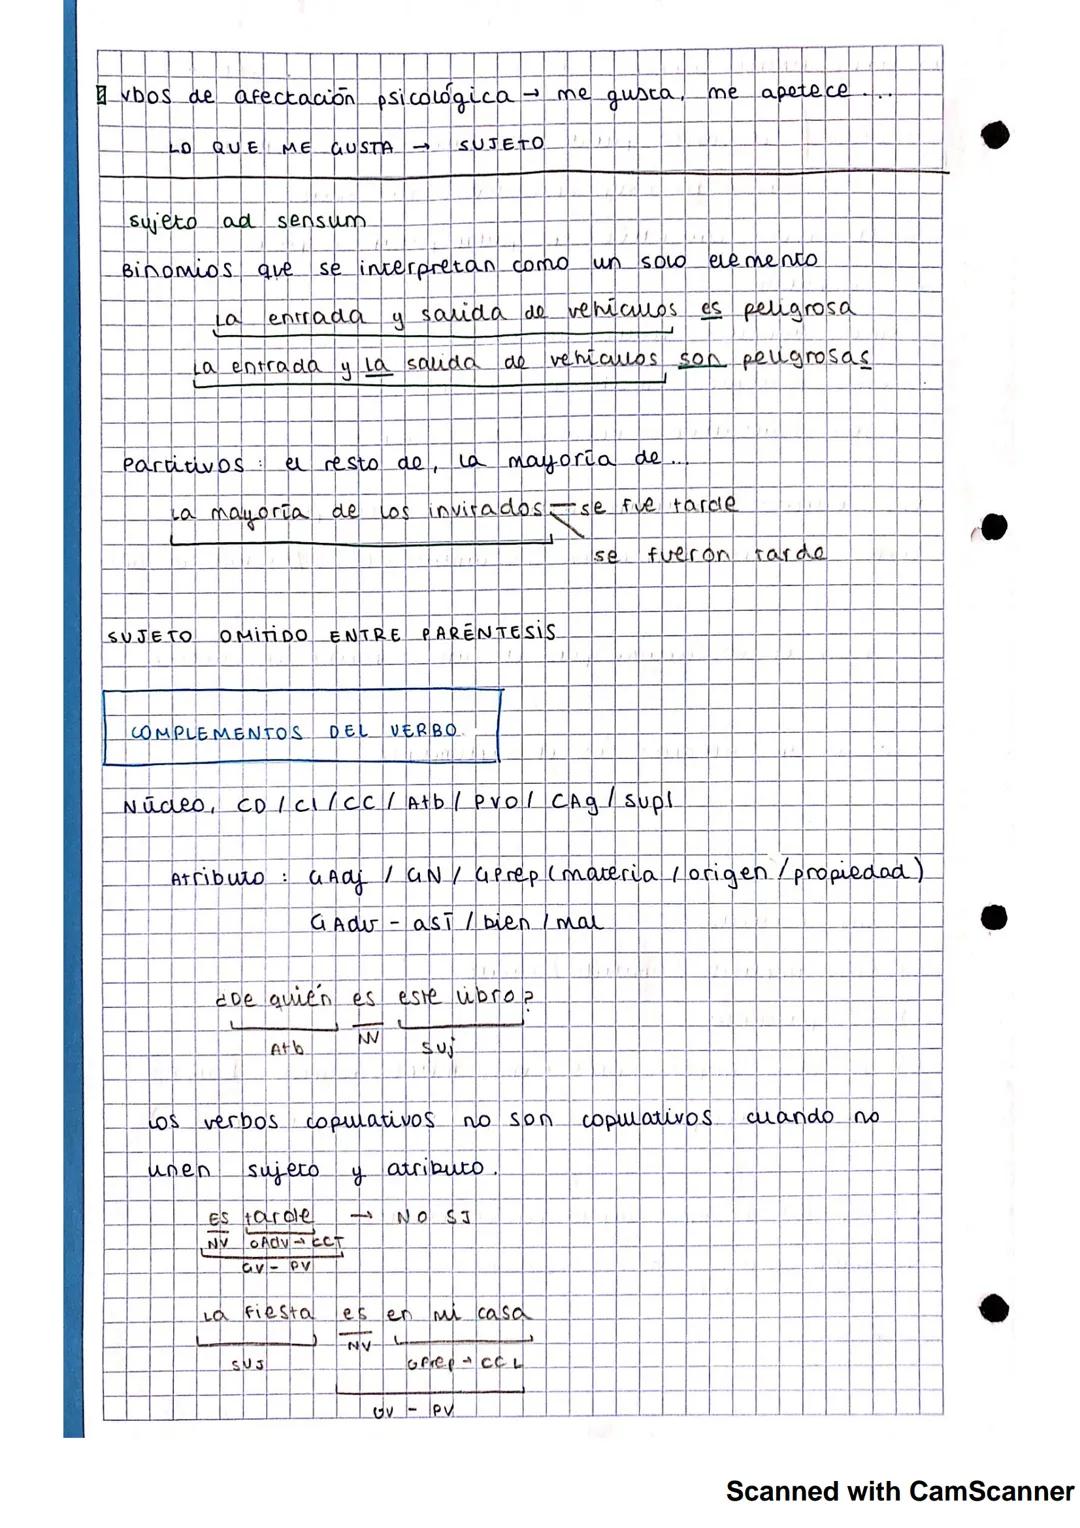 vbos de afectación psicológica → me gusta, me apetece ...
LO QUE ME GUSTA → SUJETO
sujeto ad sensum
Binomios que se interpretan como un solo elemento
La entrada y salida de vehículos es peligrosa
La entrada y la salida de vehículos son peligrosas
Partitivos : el resto de, la mayoría de ...
La mayoría de los invitados se fue tarde
se fueron tarde
SUJETO OMITIDO ENTRE PARÉNTESIS
COMPLEMENTOS DEL VERBO
Núcleo, CD / CI / CC / Atb / PVO / CAg / Supl
Atributo : GAdj / GN / GPrep (materia / origen / propiedad)
GAdv - así / bien / mal
¿De quién es este libro?
Atb NV Suj
Los verbos copulativos no son copulativos cuando no
unen sujeto y atributo.
ES tarde → NO SJ
NV GAdv → CCT
GV - PV
La fiesta es en mi casa
SUJ NV GPrep → CCL
GV - PV
Scanned with CamScanner